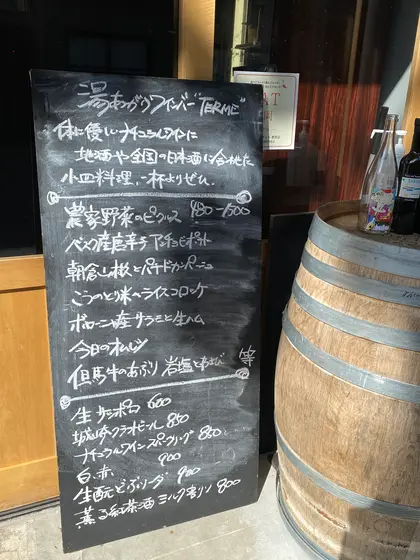 湯あがりワインバー"TERME"
体に優しいナチュラルワインに
地酒や全国の日本酒に合せた
小皿料理、一杯よりぜひ。
農家野菜のピクルス 450-1500
バスク産唐辛子アンチョビポテト
朝倉山椒とパテドカンパーニュ
こうのとり米のライスコロッケ
ボローニャ産サラミと生ハム
今日のオムレツ
但馬牛のあぶり 岩塩とわさび 等
生サッポロ 600
城崎クラフトビール 850
ナチュラルワインスパークリング 850
白、赤 900
生酛どぶソーダ 900
薫る紅茶酒ミルク割り 800